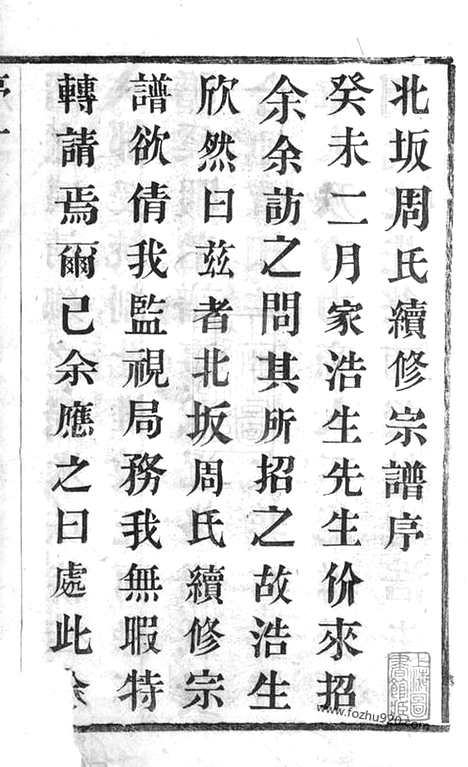 北坂周氏續修宗譜序
癸未二月家浩生先生价來招
余余訪之問其所招之故浩生
欣然曰兹者北坂周氏續修宗
譜欲倩我監視局務我無暇特
轉請焉爾已余應之曰處此
序一
上海圖書館藏
www.fozhu920.com